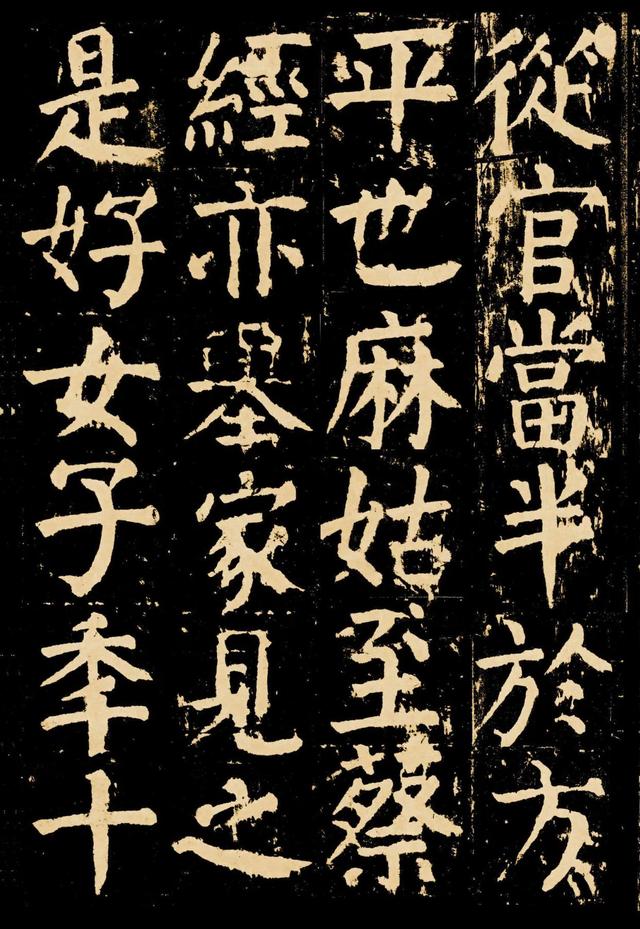 從官當半於方
平也麻姑至蔡
經亦舉家見之
是好女子年十